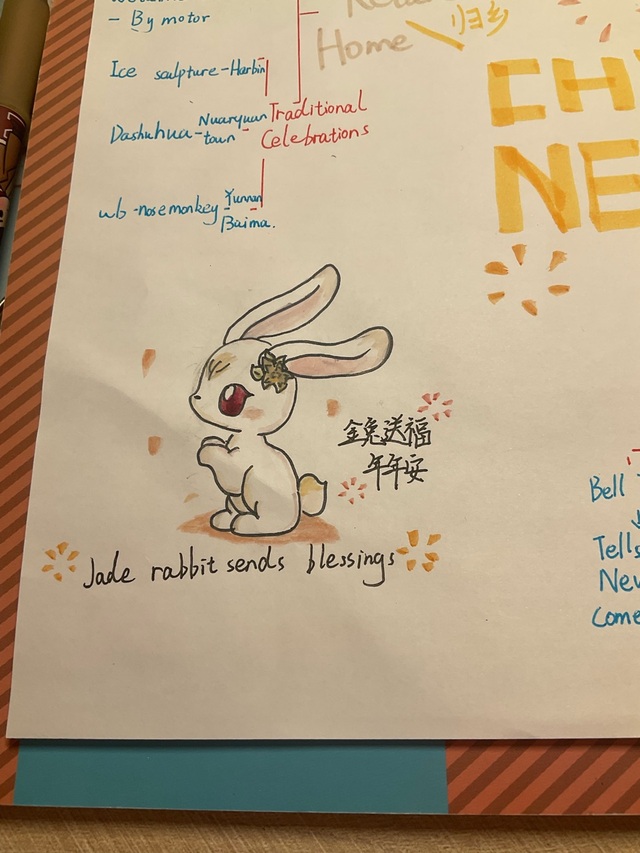 - By motor
Home
归乡
CH
Ice sculpture-Harbin
Nuanyuan Traditional
Dashuhua-town- Celebrations
NE
wb-nosemonkey-Yunnan
Baima.
金兔送福
年年安
Bell
Jade rabbit sends blessings
Tells
New
come